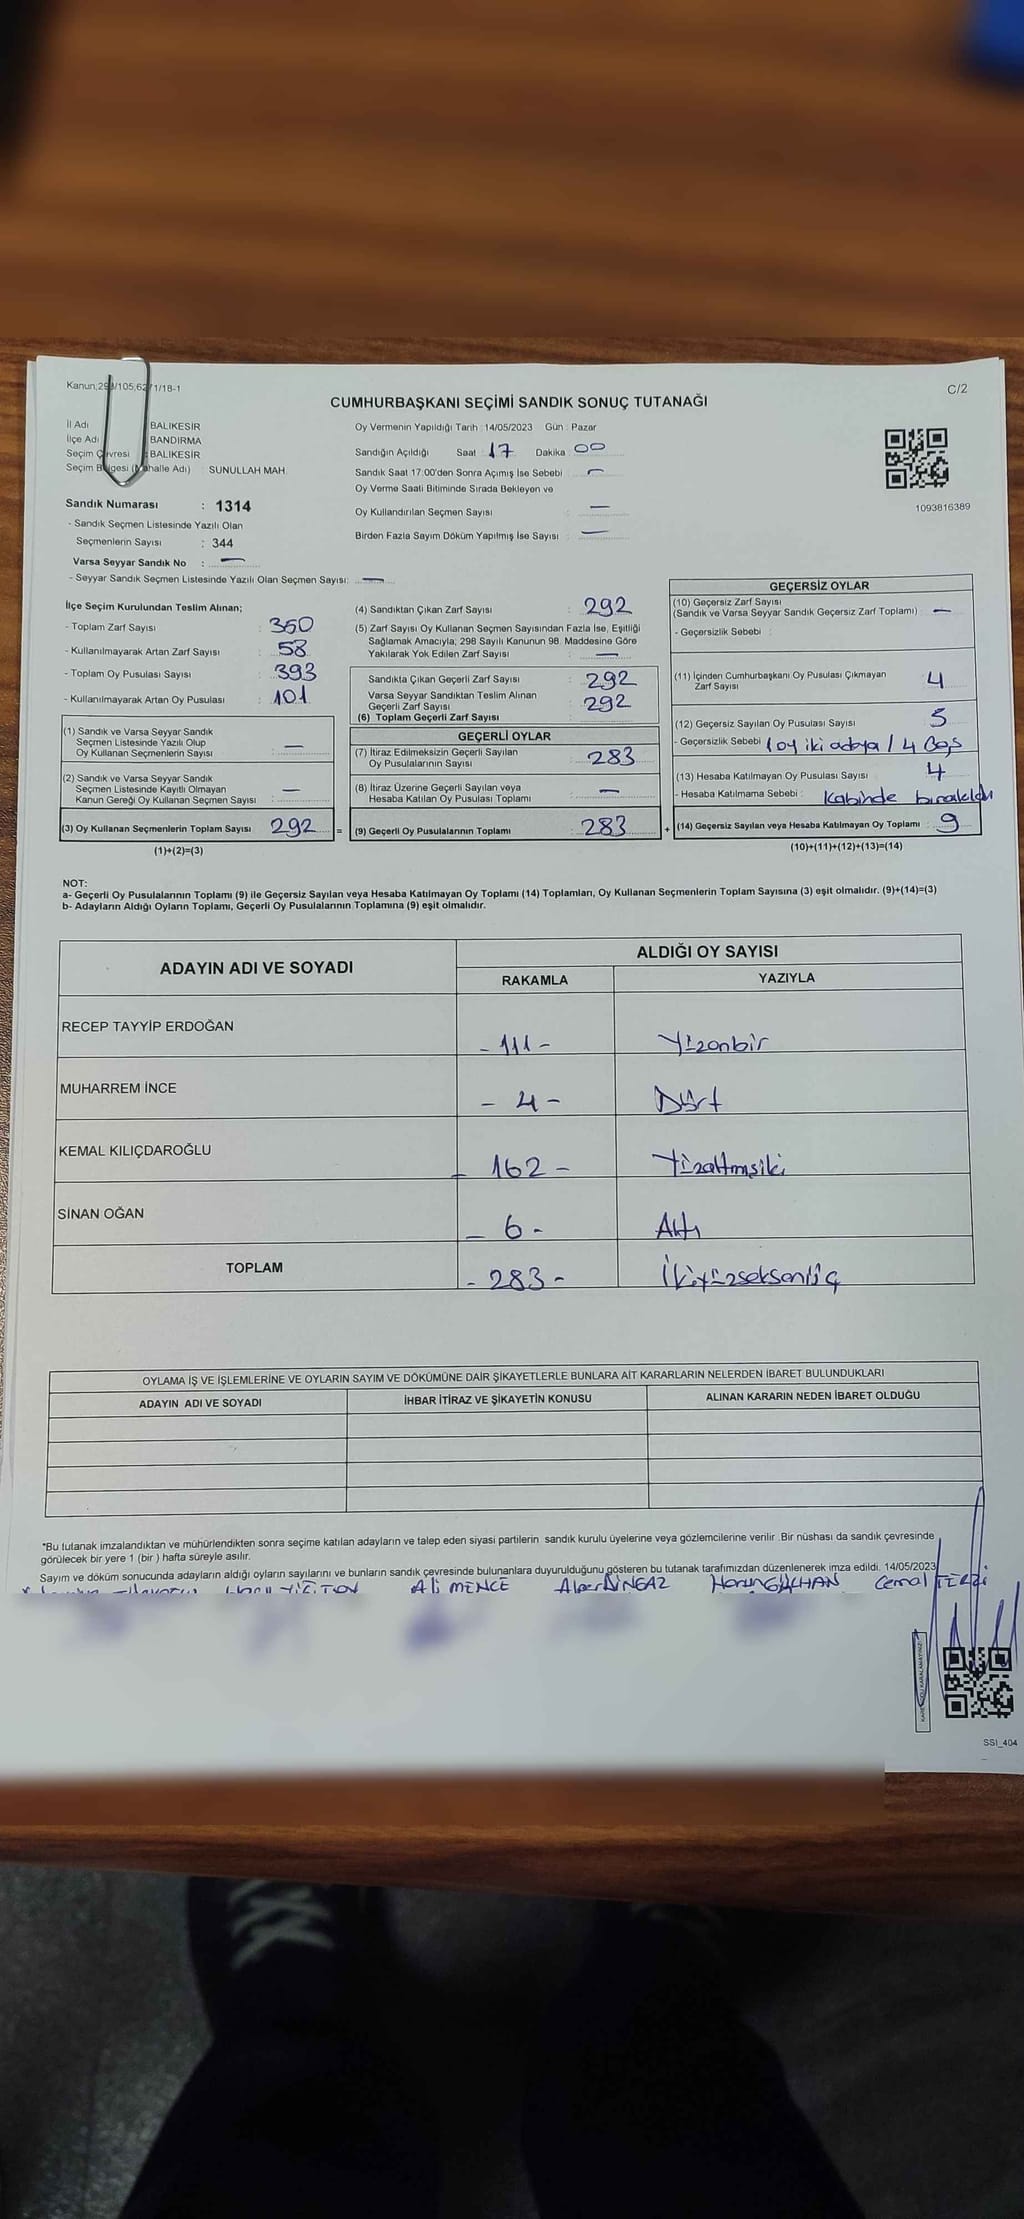 Kanun:298/105;62/1/18-1
C/2
CUMHURBAŞKANI SEÇİMİ SANDIK SONUÇ TUTANAĞI
İl Adı : BALIKESİR
İlçe Adı : BANDIRMA
Seçim Çevresi : BALIKESİR
Seçim Bölgesi (Mahalle Adı) : SUNULLAH MAH.
Sandık Numarası : 1314
- Sandık Seçmen Listesinde Yazılı Olan
Seçmenlerin Sayısı : 344
Varsa Seyyar Sandık No : —
- Seyyar Sandık Seçmen Listesinde Yazılı Olan Seçmen Sayısı: —
Oy Vermenin Yapıldığı Tarih : 14/05/2023 Gün : Pazar
Sandığın Açıldığı Saat 17 Dakika 00
Sandık Saat 17:00'den Sonra Açımış İse Sebebi —
Oy Verme Saati Bitiminde Sırada Bekleyen ve
Oy Kullandırılan Seçmen Sayısı : —
Birden Fazla Sayım Döküm Yapılmış İse Sayısı : —
1093816389
İlçe Seçim Kurulundan Teslim Alınan;
- Toplam Zarf Sayısı : 350
- Kullanılmayarak Artan Zarf Sayısı : 58
- Toplam Oy Pusulası Sayısı : 393
- Kullanılmayarak Artan Oy Pusulası : 101
(1) Sandık ve Varsa Seyyar Sandık
Seçmen Listesinde Yazılı Olup
Oy Kullanan Seçmenlerin Sayısı : —
(2) Sandık ve Varsa Seyyar Sandık
Seçmen Listesinde Kayıtlı Olmayan
Kanun Gereği Oy Kullanan Seçmen Sayısı : —
(3) Oy Kullanan Seçmenlerin Toplam Sayısı 292 =
(1)+(2)=(3)
(4) Sandıktan Çıkan Zarf Sayısı : 292
(5) Zarf Sayısı Oy Kullanan Seçmen Sayısından Fazla İse, Eşitliği
Sağlamak Amacıyla, 298 Sayılı Kanunun 98. Maddesine Göre
Yakılarak Yok Edilen Zarf Sayısı : —
Sandıkta Çıkan Geçerli Zarf Sayısı : 292
Varsa Seyyar Sandıktan Teslim Alınan
Geçerli Zarf Sayısı : 292
(6) Toplam Geçerli Zarf Sayısı :
GEÇERLİ OYLAR
(7) İtiraz Edilmeksizin Geçerli Sayılan
Oy Pusulalarının Sayısı : 283
(8) İtiraz Üzerine Geçerli Sayılan veya
Hesaba Katılan Oy Pusulası Toplamı : —
(9) Geçerli Oy Pusulalarının Toplamı : 283 +
GEÇERSİZ OYLAR
(10) Geçersiz Zarf Sayısı
(Sandık ve Varsa Seyyar Sandık Geçersiz Zarf Toplamı) : —
- Geçersizlik Sebebi :
(11) İçinden Cumhurbaşkanı Oy Pusulası Çıkmayan
Zarf Sayısı : 4
(12) Geçersiz Sayılan Oy Pusulası Sayısı : 5
- Geçersizlik Sebebi : 1 oy iki adaya / 4 Boş
(13) Hesaba Katılmayan Oy Pusulası Sayısı : 4
- Hesaba Katılmama Sebebi : Kabinde bırakıldı
(14) Geçersiz Sayılan veya Hesaba Katılmayan Oy Toplamı : 9
(10)+(11)+(12)+(13)=(14)
NOT:
a- Geçerli Oy Pusulalarının Toplamı (9) ile Geçersiz Sayılan veya Hesaba Katılmayan Oy Toplamı (14) Toplamları, Oy Kullanan Seçmenlerin Toplam Sayısına (3) eşit olmalıdır. (9)+(14)=(3)
b- Adayların Aldığı Oyların Toplamı, Geçerli Oy Pusulalarının Toplamına (9) eşit olmalıdır.
ADAYIN ADI VE SOYADI
ALDIĞI OY SAYISI
RAKAMLA YAZIYLA
RECEP TAYYİP ERDOĞAN - 111 - Yüzonbir
MUHARREM İNCE - 4 - Dört
KEMAL KILIÇDAROĞLU - 162 - Yüzaltmışiki
SİNAN OĞAN - 6 - Altı
TOPLAM - 283 - İkiyüzseksenüç
OYLAMA İŞ VE İŞLEMLERİNE VE OYLARIN SAYIM VE DÖKÜMÜNE DAİR ŞİKAYETLERLE BUNLARA AİT KARARLARIN NELERDEN İBARET BULUNDUKLARI
ADAYIN ADI VE SOYADI İHBAR İTİRAZ VE ŞİKAYETİN KONUSU ALINAN KARARIN NEDEN İBARET OLDUĞU
*Bu tutanak imzalandıktan ve mühürlendikten sonra seçime katılan adayların ve talep eden siyasi partilerin sandık kurulu üyelerine veya gözlemcilerine verilir. Bir nüshası da sandık çevresinde
görülecek bir yere 1 (bir) hafta süreyle asılır.
Sayım ve döküm sonucunda adayların aldığı oyların sayılarını ve bunların sandık çevresinde bulunanlara duyurulduğunu gösteren bu tutanak tarafımızdan düzenlenerek imza edildi. 14/05/2023
Ali MENCE Alper DİNGAZ Harun Cemal TERZİ
SSI_404